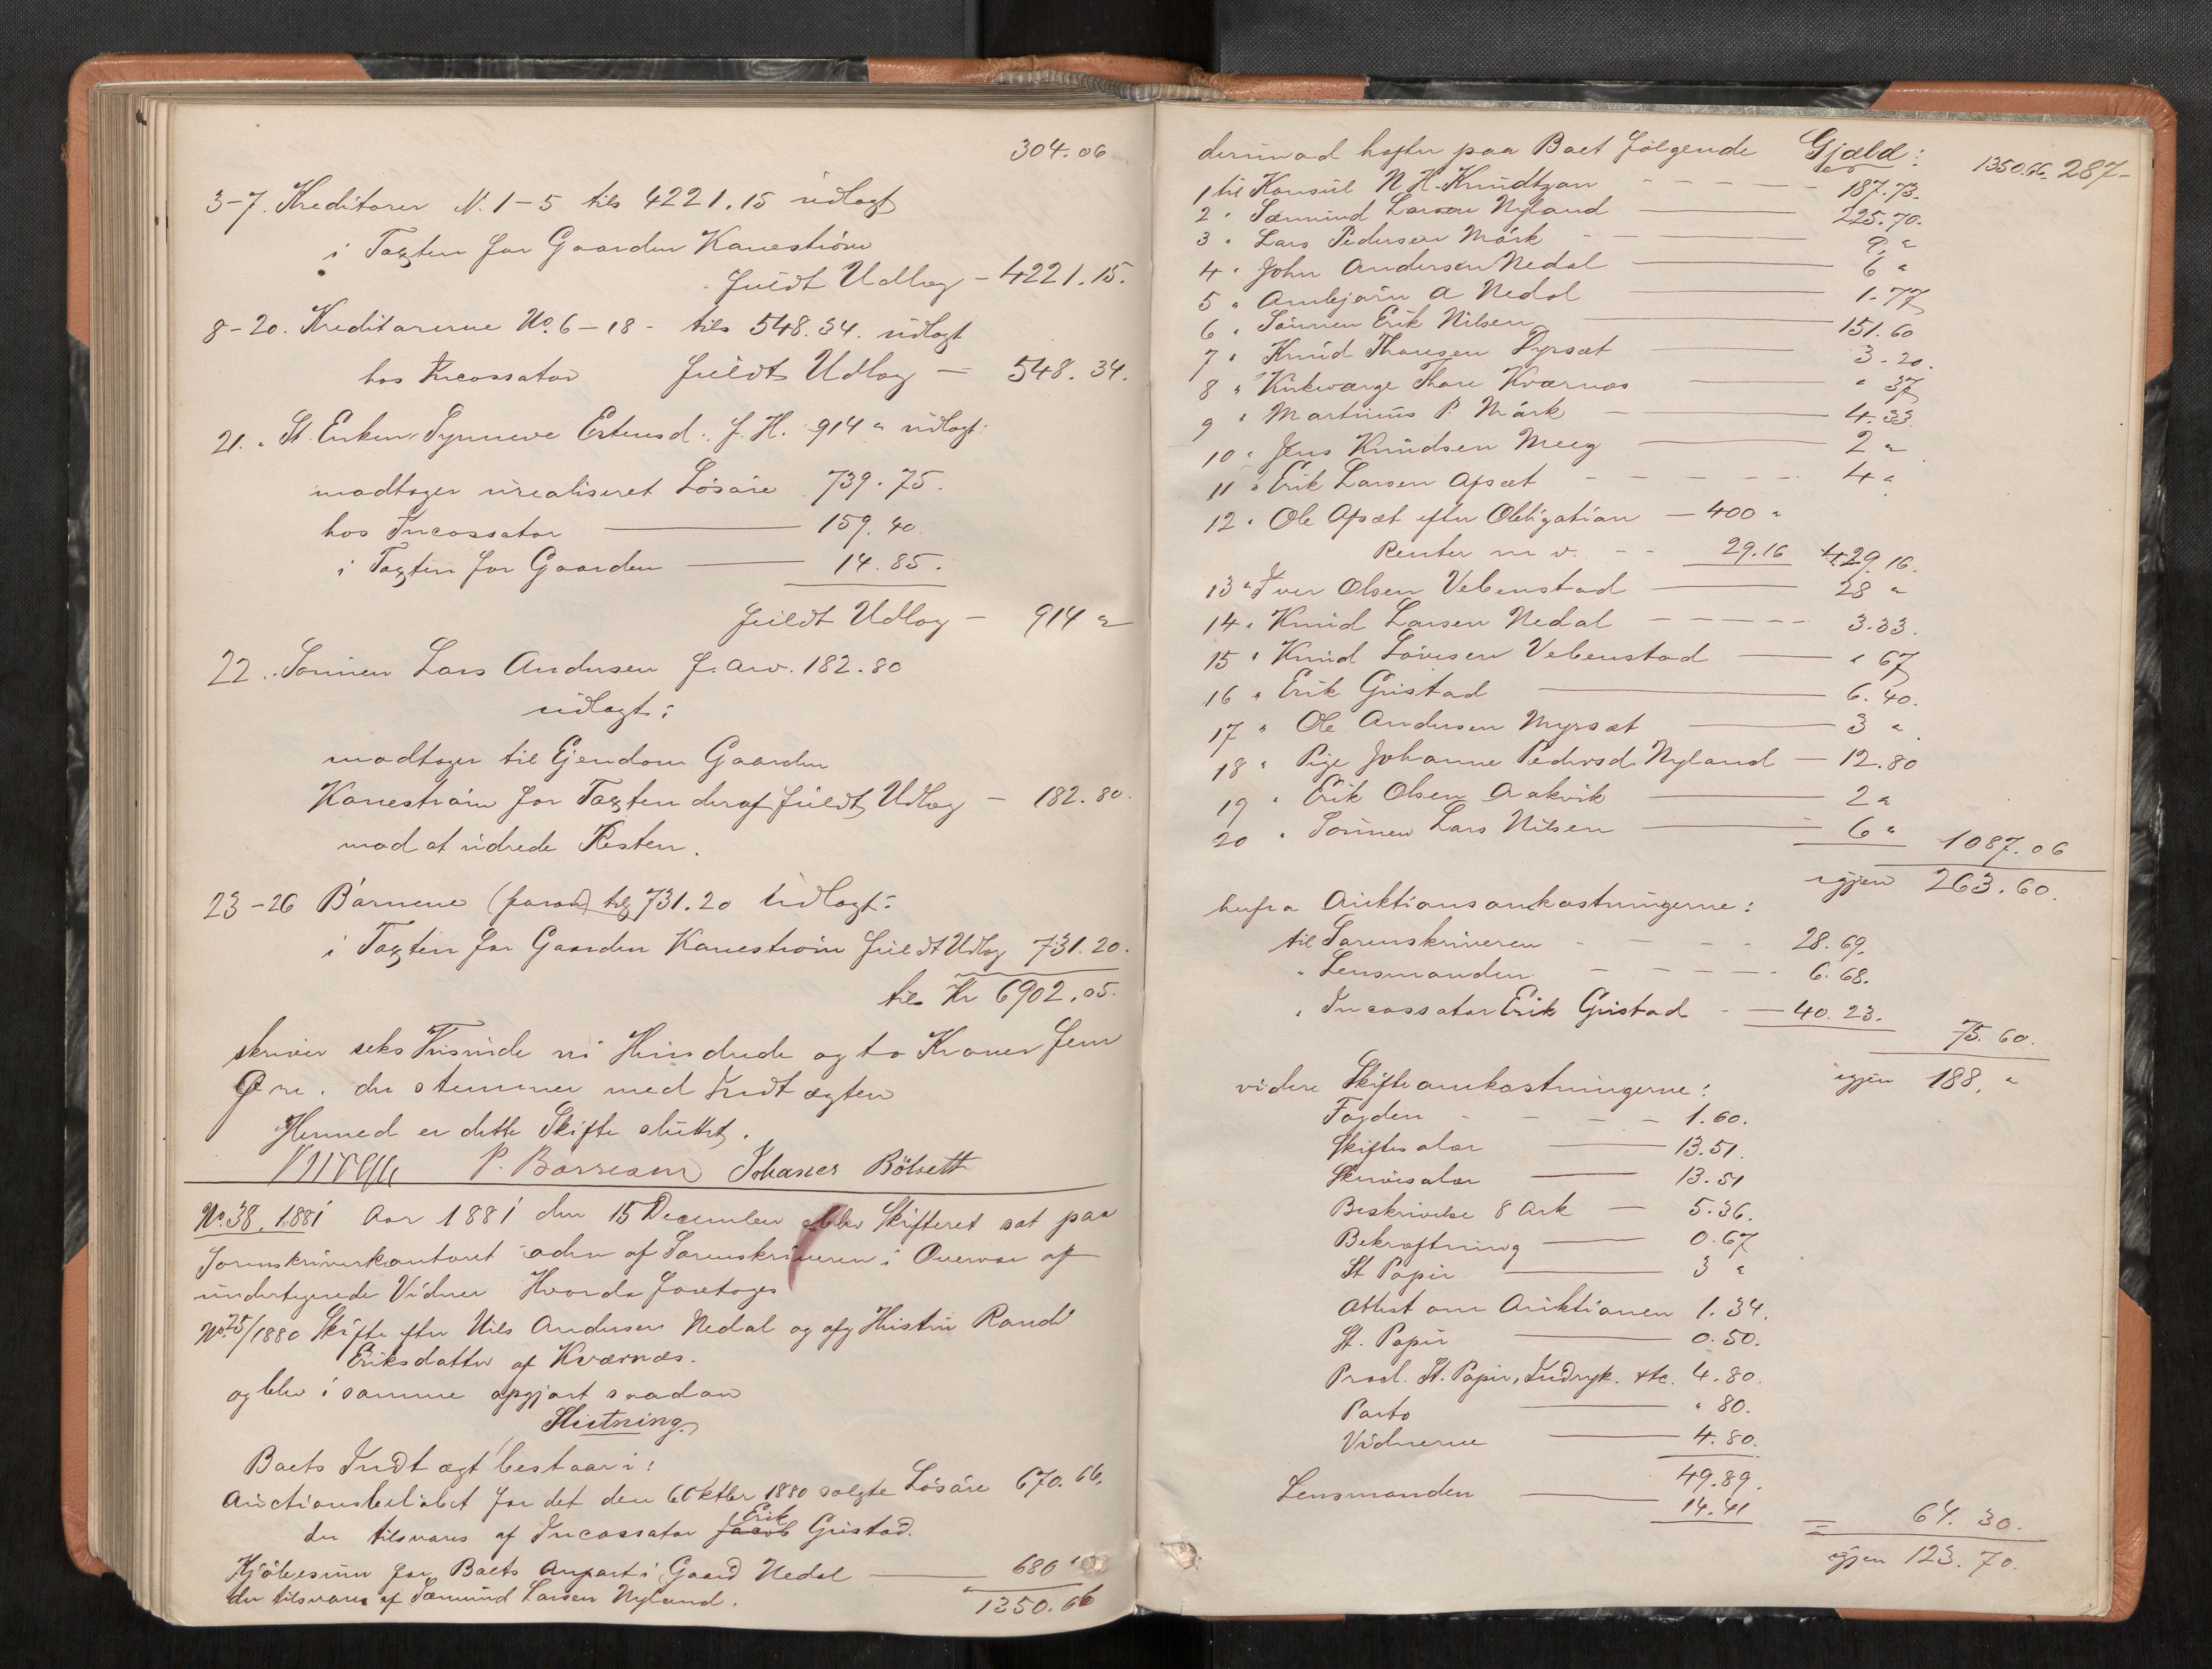 304.06
3-7. Kreditorer N. 1-5 tils 4221.15 udlagt
i Taxten for Gaarden Kanestrøm
fuldt Udlæg - 4221.15.
8-20. Kreditorerne No. 6-18 - tils 548.34. udlagt
hos Incassator fuldt Udlæg - 548.34.
21. St. Enken Synneve Estensd. f. H. 914 " udlagt:
modtager urealiseret Løsøre 739.75.
hos Incassator 159.40.
i Taxten for Gaarden 14.85.
fuldt Udlæg - 914 "
22. Sønnen Lars Andersen f. arv. 182.80
udlagt:
modtager til Ejendom Gaarden
Kanestrøm for Taxten deraf fuldt Udlæg - 182.80.
mod at udrede Resten.
23-26 Børnene (foran) tils 731.20 udlagt:
i Taxten for Gaarden Kanestrøm fuldt Udlæg 731.20.
tils Kr 6902.05.
skriver seks Tusinde ni Hundrede og to Kroner fem
Øre. der stemmer med Indtægten
Hermed er dette Skifte sluttet.
P. Johanes Bölsett
No. 38. 1881 Aar 1881 den 15 December blev Skifteret sat paa
Sorenskriverkontoret adm af Sorenskriveren i Overvær af
undertegnede Vidner Hvorda foretoges
No. 25/1880 Skifte efter Nils Andersen Nedal og afg Hustru Randi
Eriksdatter af Kværnæs.
og blev i samme opgjort saadan
Slutning
Boets Indtægt bestaar i:
Auctionsbeløbet for det den 6 Oktbr 1880 solgte Løsøre 670.66.
der tilsvares af Incassator Jacob Erik Gristad.
Kjøbesum for Boets Anpart i Gaard Nedal 680 "
der tilsvares af Sæmund Larsen Nyland. 1350.66
derimod hefter paa Boet følgende Gjæld: 1350.66. 287-
1 til Konsul N. H. Knudtzon 187.73.
2 " Sæmund Larsen Nyland 225.70.
3 " Lars Pedersen Mørk 9. "
4 " John Andersen Nedal 6 "
5 " Arnbjørn A Nedal 1.77
6 " Sønnen Erik Nilsen 151.60
7 " Knud Thorsen Dyrsæt 3.20.
8 " Kirkeværge Thore Kværnæs " 37
9 " Martinus P. Mørk 4.33.
10 " Jens Knudsen Meeg 2 "
11 " Erik Larsen Opsæt 4 "
12 " Ole Opsæt efter Obligation - 400 "
Renter m v. 29.16 429.16.
13 " Iver Olsen Vebenstad 28 "
14 " Knud Larsen Nedal 3.33.
15 " Knud Lovisen Vebenstad " 67
16 " Erik Gristad 6.40.
17 " Ole Andersen Myrsæt 3 "
18 " Pige Johanne Pedersd. Nyland - 12.80
19 " Erik Olsen Aakvik 2 "
20 " Sønnen Lars Nilsen 6 " 1087.06
igjen 263.60.
herfra Auktionsomkostningerne:
til Sorenskriveren 28.69.
" Lensmanden 6.68.
" Incassator Erik Gristad 40.23. 75.60.
igjen 188. "
videre Skifteomkostningerne:
Fogden 1.60.
Skiftesalær 13.51.
Skriversalær 13.51
Beskrivelse 8 Ark 5.36.
Bekræftning 0.67
St Papir 3 "
Attest om Auktionen 1.34.
St. Papir 0.50.
Procl. St. Papir, Indryk. etc. 4.80.
Porto " 80.
Vidnerne 4.80.
49.89.
Lensmanden 14.41
= 64.30.
igjen 123.70.